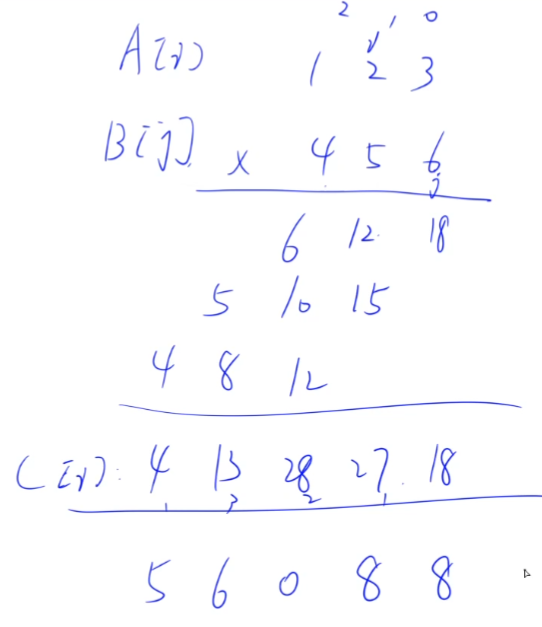 2 1 0
A[i] 1 2 3
B[j] × 4 5 6
6 12 18
5 10 15
4 8 12
C[i]: 4 13 28 27 18
1 3 2 1
5 6 0 8 8